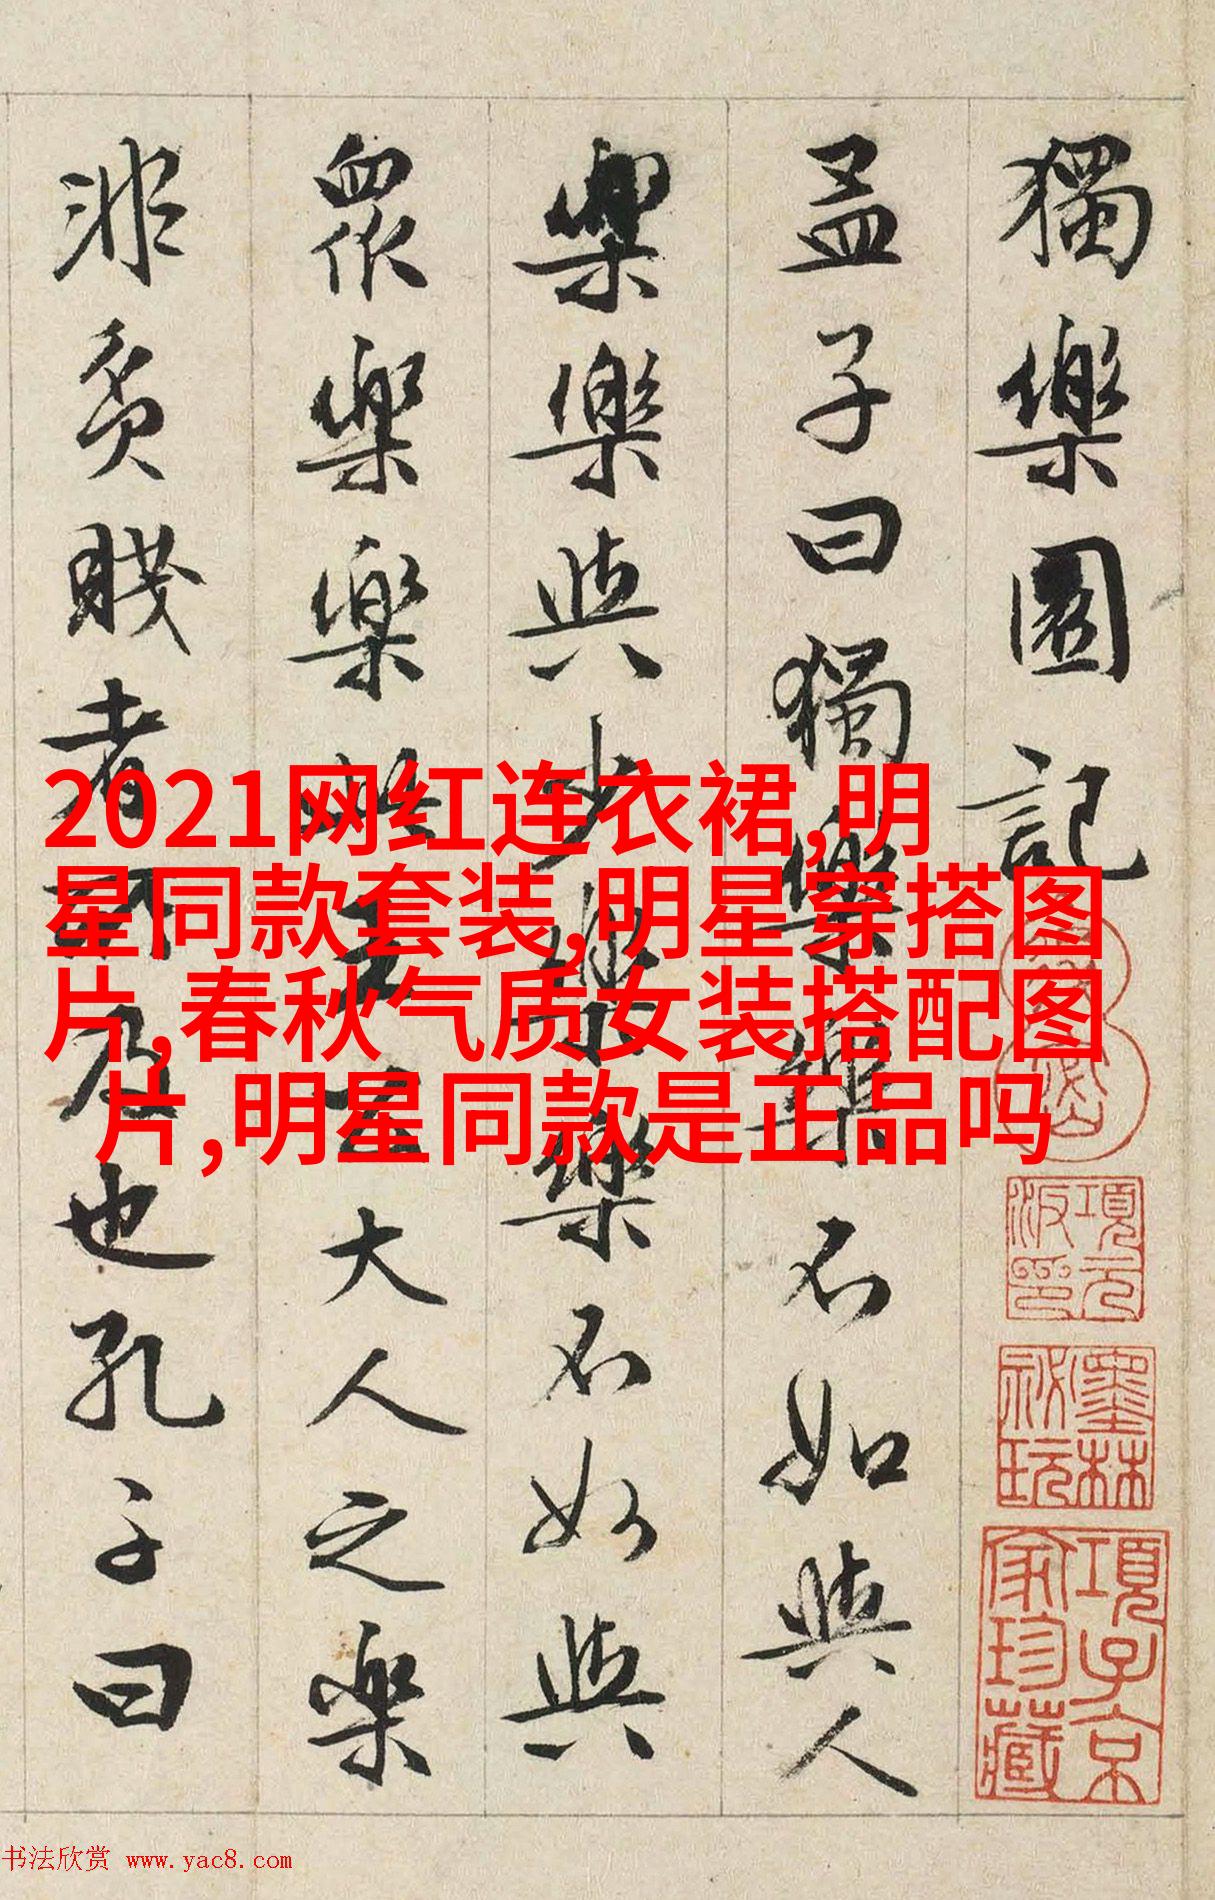 獨樂園記
孟子曰獨樂樂不如與人
樂樂與少樂樂不如與
衆樂樂此王公大人之樂
非貧賤者所及也孔子曰
2021网红连衣裙,明
星同款套装,明星穿搭图
片,春秋气质女装搭配图
片,明星同款是正品吗
項元汴印
墨林祕玩
項子京家珍藏
书法欣赏 www.yac8.com